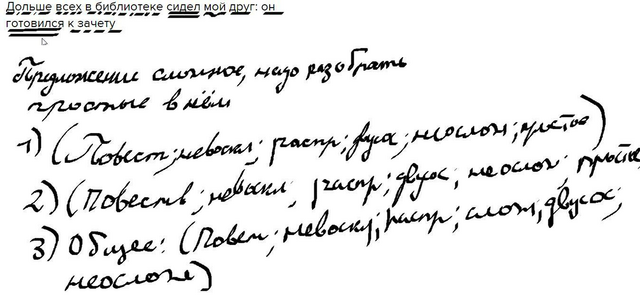 Дольше всех в библиотеке сидел мой друг: он
готовился к зачету
Предложение сложное, надо разобрать
простые в нём
1) (Повест; невоскл; распр; двус; неослож; простое)
2) (Повеств; невоскл; распр; двусос; неослож; простое
3) Общее: (Повест; невоскл; распр; слож; двусос;
неосложне)